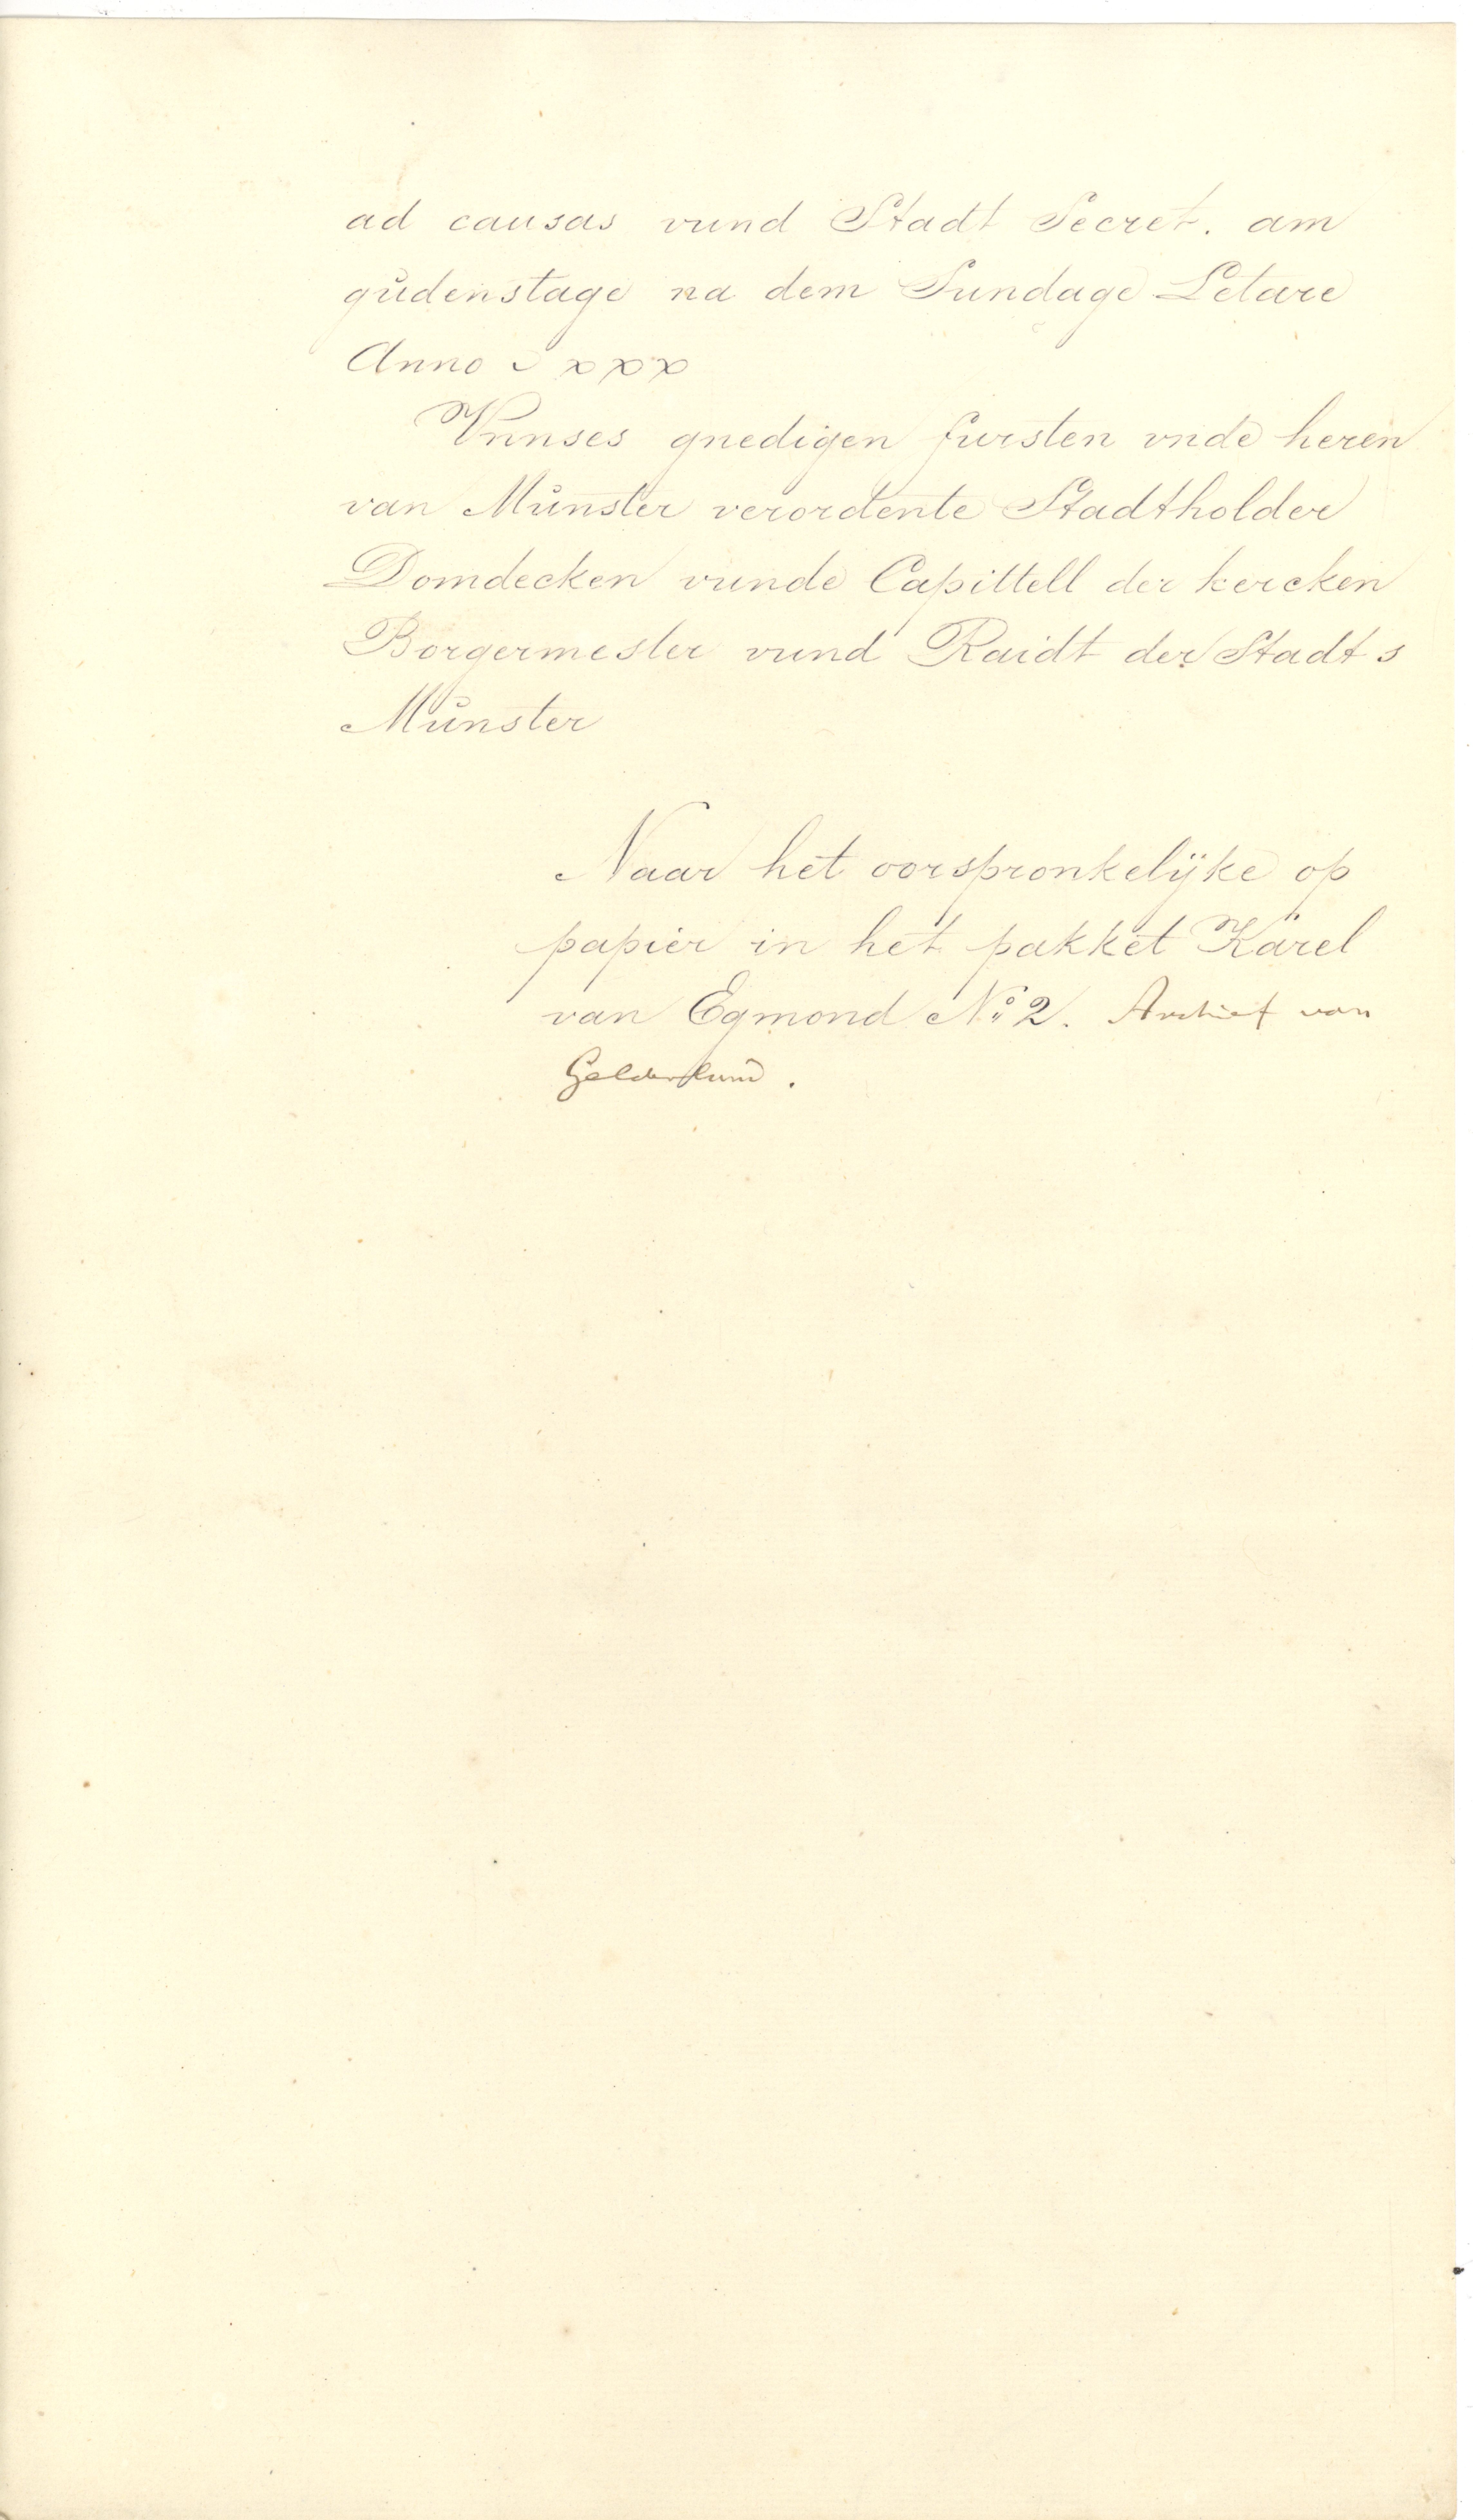 ad causas vund Stadt Secret. am
gůdenstage na dem Sundage Letare
Anno xxx
Vnnses gnedigen fursten vnde heren
van Můnster verordente Stadtholder
Domdecken vunde Capittell der kercken
Borgermester vund Raidt der Stadt s
Můnster
Naar het oorspronkelijke op
papier in het pakket Karel
van Egmond No 2. Archief van
Gelderland.